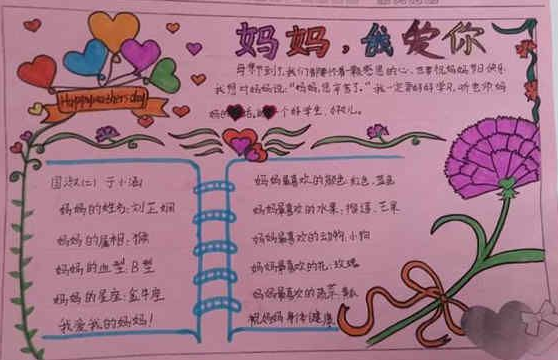 妈妈,我爱你
Happymothersday
母亲节到了,我们都怀着一颗感恩的心,
我想对妈妈说:"妈妈,您辛苦了。"我一定要好好学习,听老师妈
妈的话,做个好学生、好
妈妈的姓名:刘芷娟
妈妈的属相:猴
妈妈的血型:B型
妈妈的星座:金牛座
我爱我的妈妈!
妈妈最喜欢的颜色:红色、蓝色
妈妈最喜欢的水果:榴莲、芒果
妈妈最喜欢的动物:小狗
妈妈最喜欢的花:玫瑰
妈妈最喜欢的蔬菜:
祝妈妈身体健康